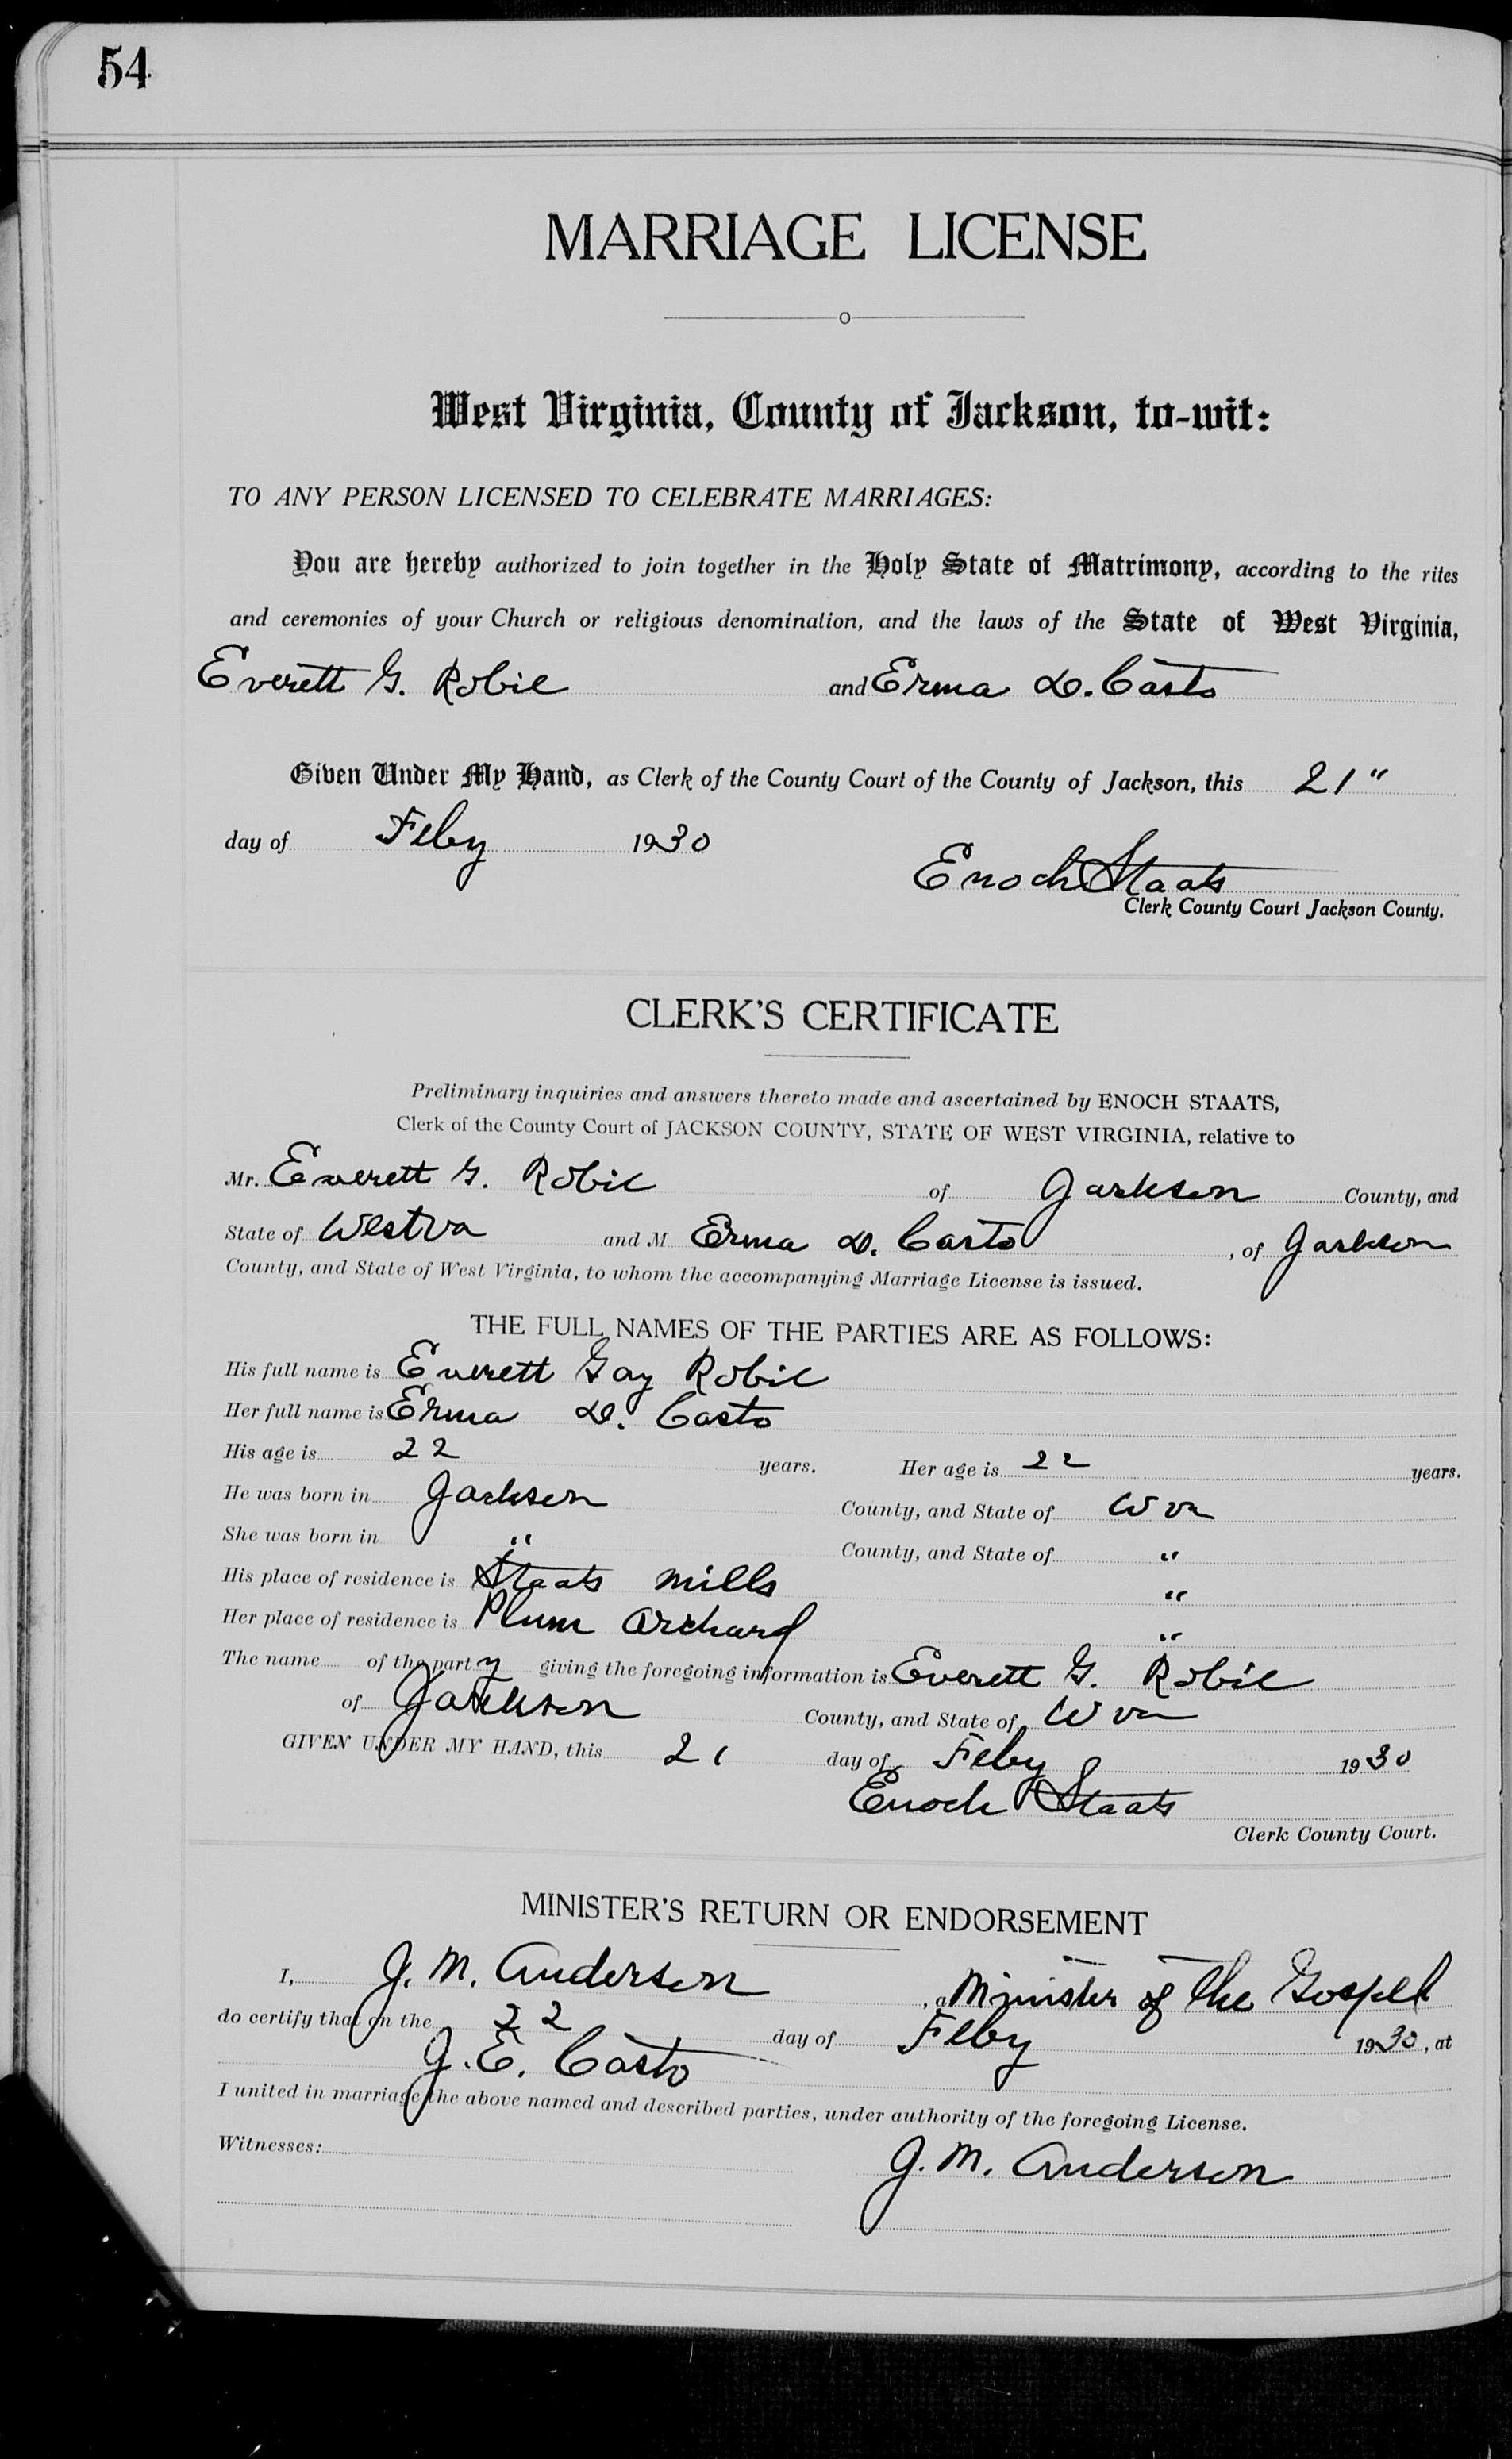 54
MARRIAGE LICENSE
West Virginia, County of Jackson, to-wit:
TO ANY PERSON LICENSED TO CELEBRATE MARRIAGES:
You are hereby authorized to join together in the Holy State of Matrimony, according to the rites
and ceremonies of your Church or religious denomination, and the laws of the State of West Virginia,
Everett G. Robie and Erma D. Casto
Given Under My Hand, as Clerk of the County Court of the County of Jackson, this 21"
day of Feby 1930
Enoch Staats
Clerk County Court Jackson County.
CLERK'S CERTIFICATE
Preliminary inquiries and answers thereto made and ascertained by ENOCH STAATS,
Clerk of the County Court of JACKSON COUNTY, STATE OF WEST VIRGINIA, relative to
Mr. Everett G. Robie of Jackson County, and
State of West Va and M Erma D. Casto, of Jackson
County, and State of West Virginia, to whom the accompanying Marriage License is issued.
THE FULL NAMES OF THE PARTIES ARE AS FOLLOWS:
His full name is Everett Gay Robie
Her full name is Erma D. Casto
His age is 22 years. Her age is 22 years.
He was born in Jackson County, and State of W va
She was born in " County, and State of "
His place of residence is Staats Mills "
Her place of residence is Plum Orchard "
The name of the party giving the foregoing information is Everett G. Robie
of Jackson County, and State of W va
GIVEN UNDER MY HAND, this 21 day of Feby 1930
Enoch Staats
Clerk County Court.
MINISTER'S RETURN OR ENDORSEMENT
I, J. M. Anderson, a Minister of the Gospel
do certify that on the 22 day of Feby 1930, at
J. E. Casto
I united in marriage the above named and described parties, under authority of the foregoing License.
Witnesses:
J. M. Anderson